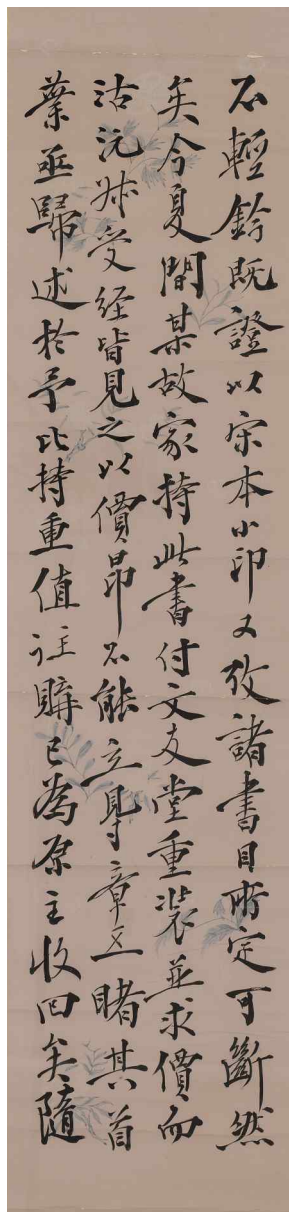 不輕鈐既證以宋本小印又攷諸書目所定可斷然
矣今夏聞某故家持此書付文友堂重裝並求價而
沽沅叔受經皆見之以價昂不能立得章五睹其首
葉亟歸述於予比持重值往購已為原主收回矣隨